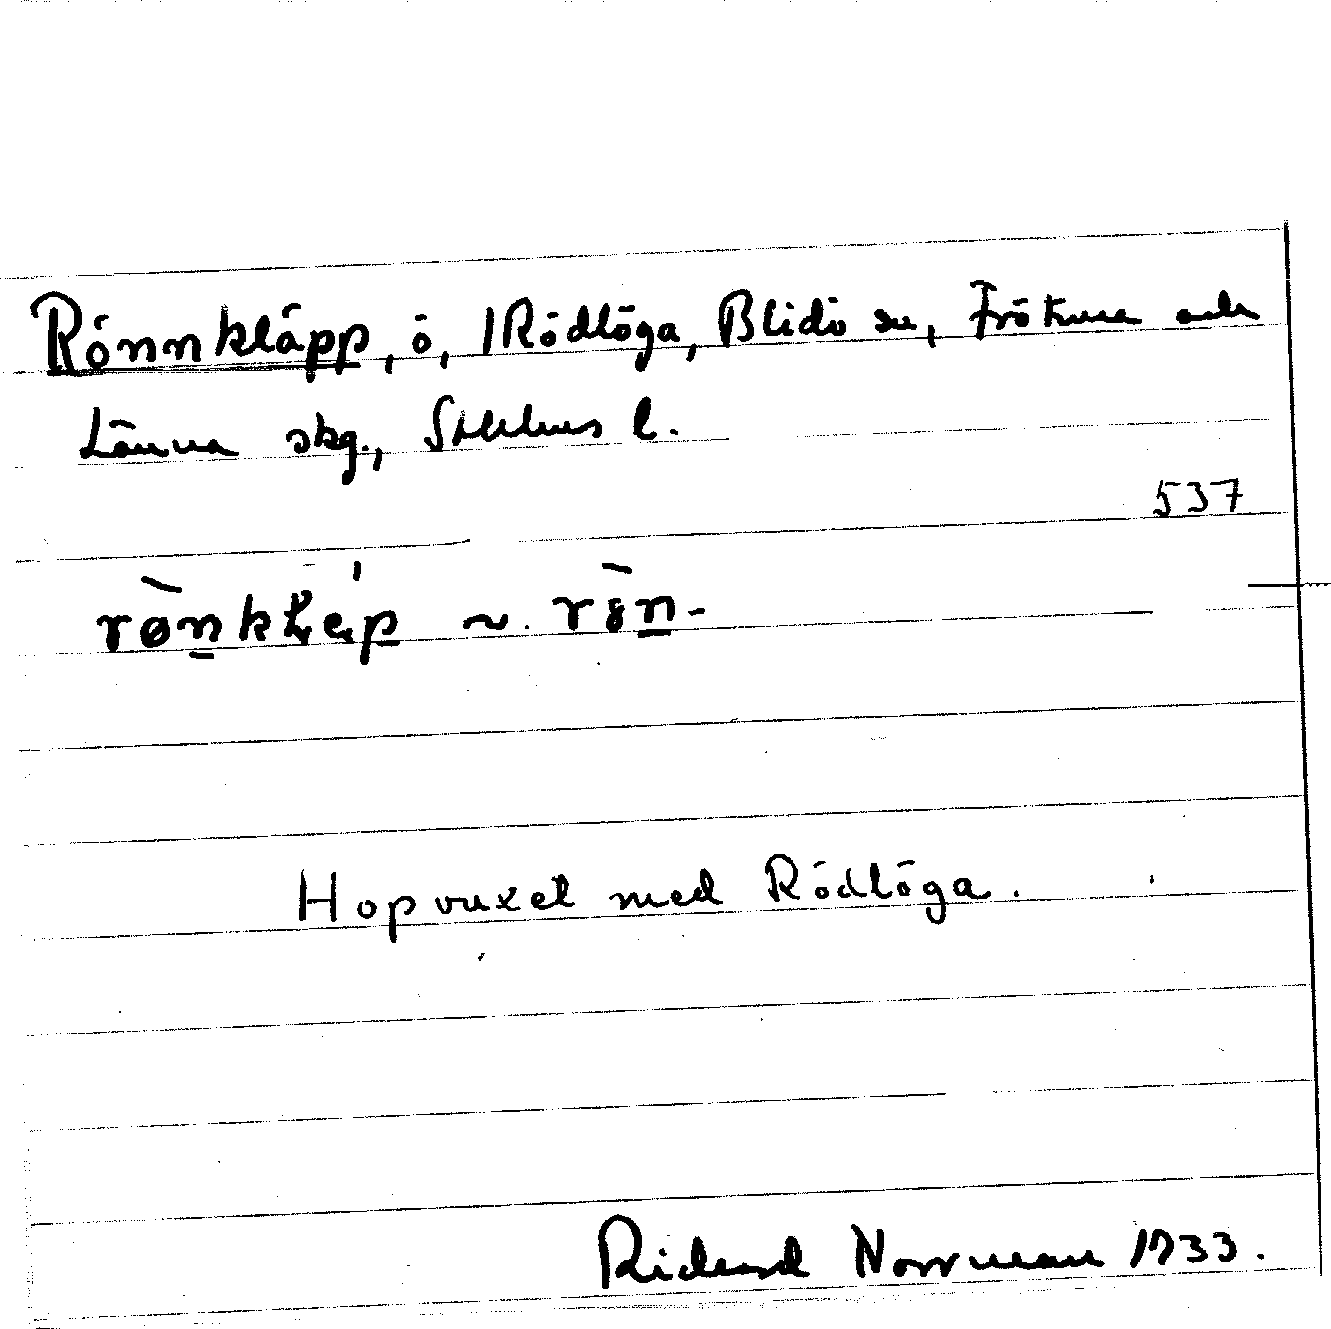 Rönnkläpp, ö, /Rödlöga, Blidö sn, Frötuna och
Länna skg., Sthlms l.
537
rø̀n̲kḷɛ́p̲ ~ rö̀n̲-
Hopvuxet med Rödlöga.
Richard Norrman 1933.